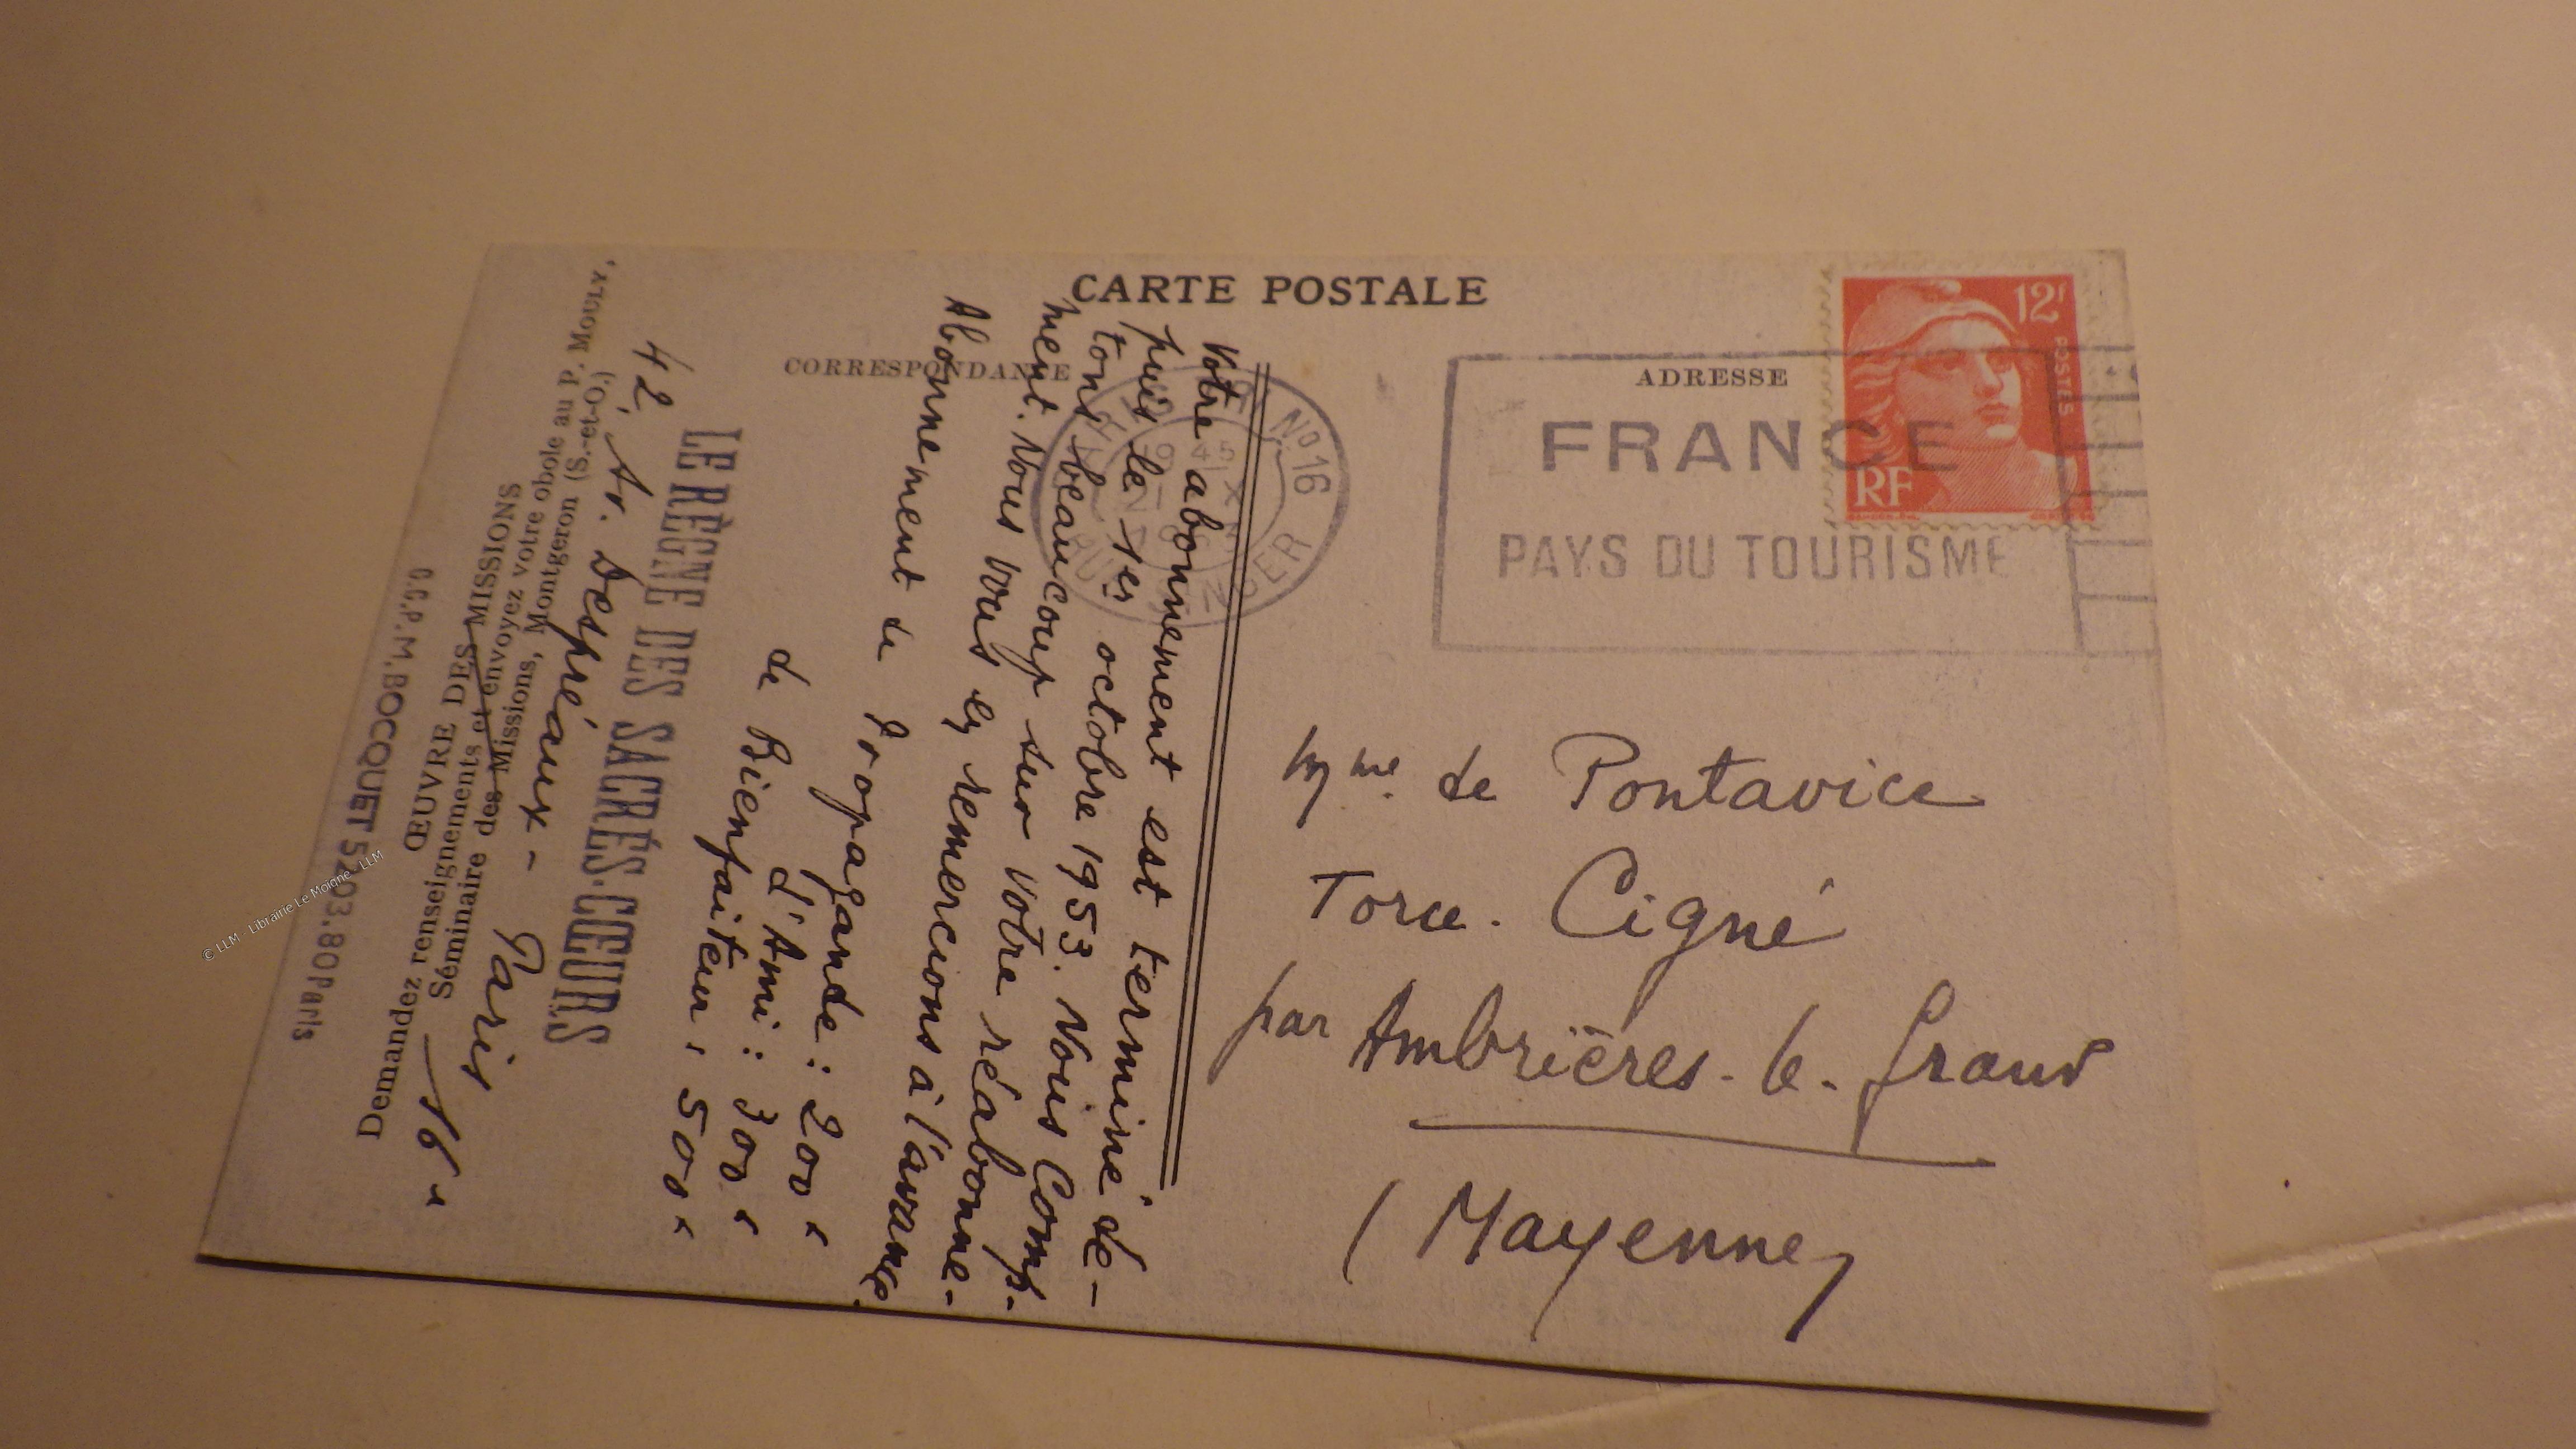 CARTE POSTALE
CORRESPONDANCE
ADRESSE
12f
POSTES
RF
FRANCE
PAYS DU TOURISME
No 16
Mme de Pontavice
Torcé. Cigné
par Ambrières. le. Grand
(Mayenne)
Votre abonnement est terminé de-
puis le 1er octobre 1953. Nous Comp-
tons beaucoup sur votre réabonne-
ment. Nous vous en remercions à l'avance.
Abonnement de Propagande : 200 f
d'Ami : 300 f
de Bienfaiteur : 500 f
LE RÈGNE DES SACRÉS-CŒURS
42, Av. Despréaux - Paris 16e
Demandez renseignements et envoyez votre obole au P. MOULY,
Séminaire des Missions, Montgeron (S.-et-O.)
ŒUVRE DES MISSIONS
C.C.P. M. BOCQUET 5203.80 Paris
© LLM - Librairie Le Moigne - LLM